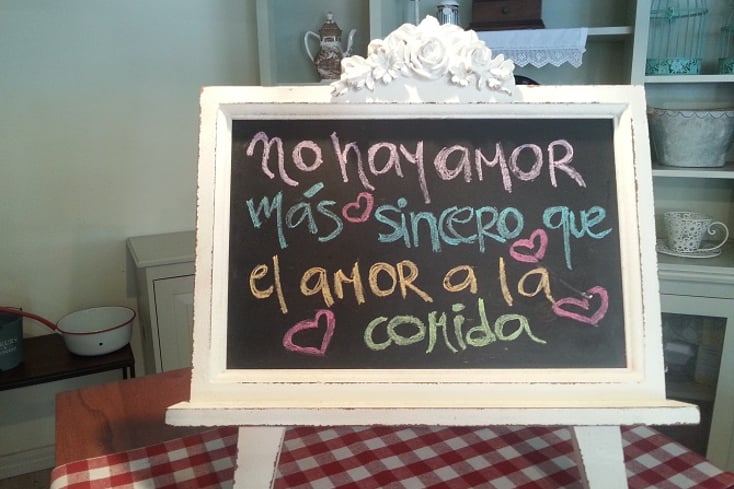 no hay amor
más sincero que
el amor a la
comida